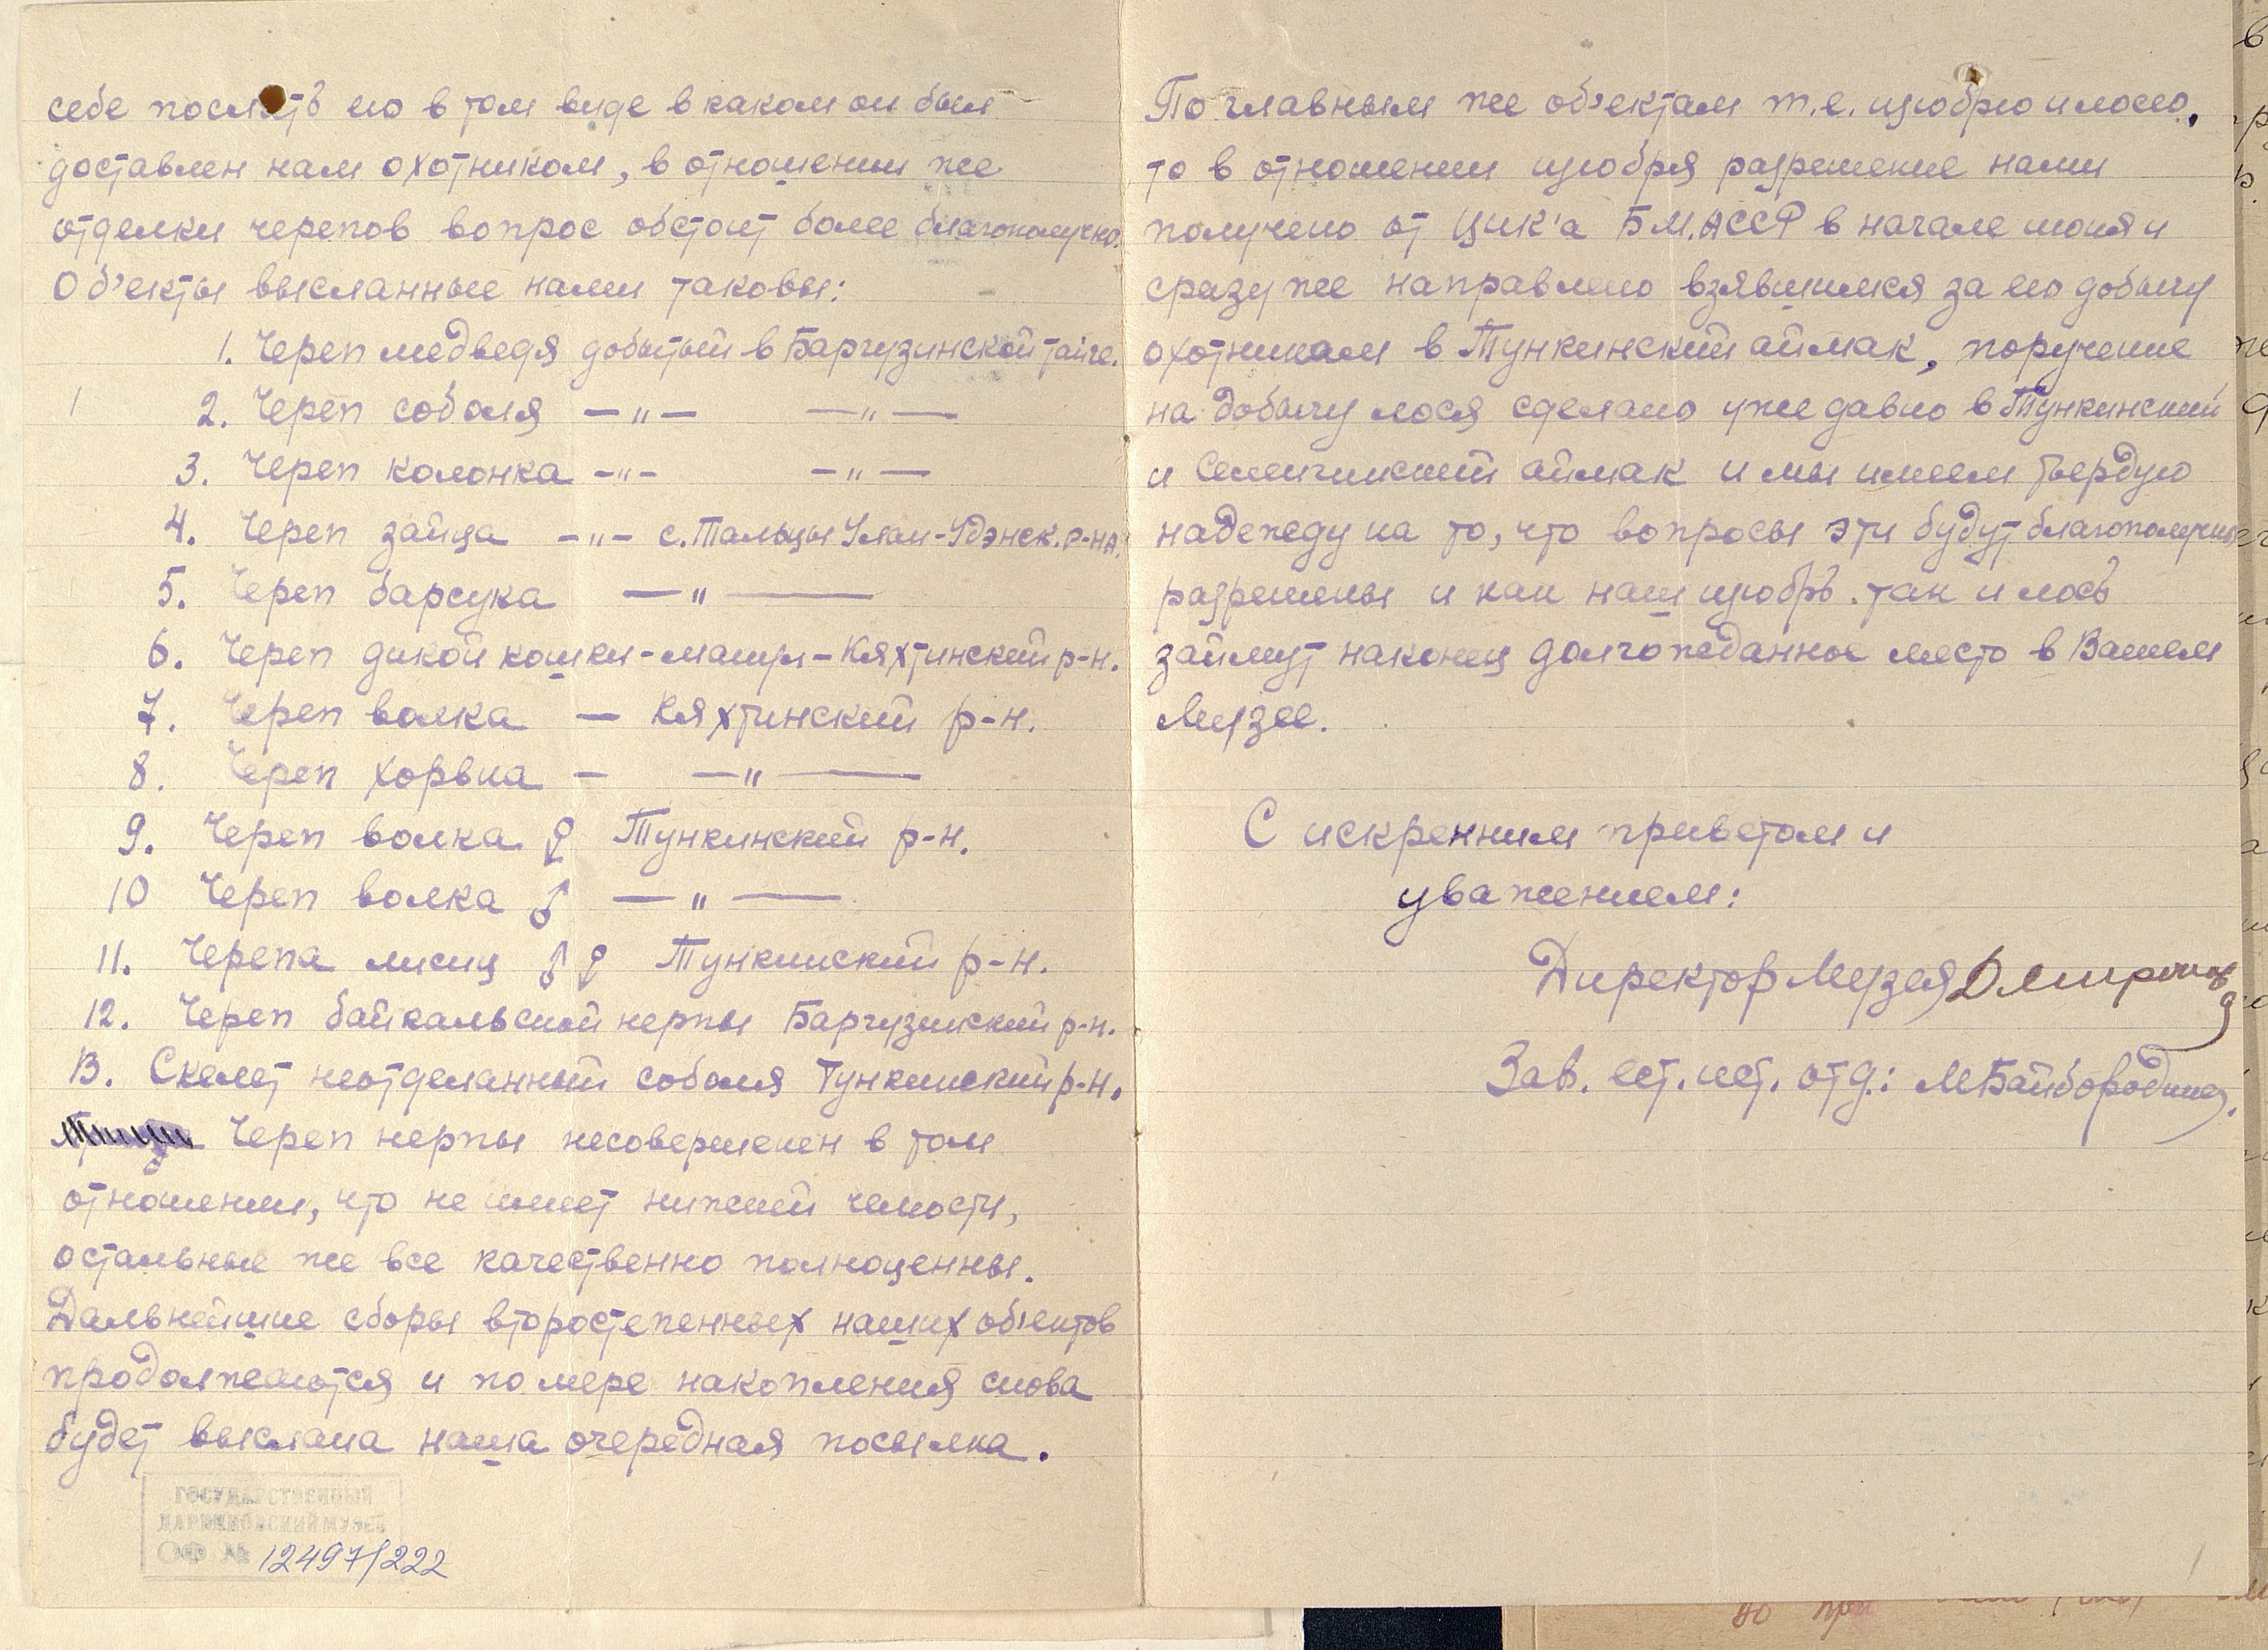 себе послать его в том виде в каком он был
доставлен нам охотником, в отношении же
отделки черепов вопрос обстоит более благополучно.
Об'екты высланные нами таковы:
1. Череп медведя добытый в Баргузинской тайге.
2. Череп соболя —„— —„—
3. Череп колонка —„— —„—
4. Череп зайца —„— с. Тальцы Улан-Удэнск. р-на.
5. Череп барсука —„—
6. Череп дикой кошки - манул - Кяхтинский р-н.
7. Череп волка — Кяхтинский р-н.
8. Череп хорька — —„—
9. Череп волка ♀ Тункинский р-н.
10 Череп волка ♂ —„—
11. Черепа лисиц ♂♀ Тункинский р-н.
12. Череп байкальской нерпы Баргузинский р-н.
13. Скелет неотделанный соболя Тункинский р-н.
Череп нерпы несовершенен в том
отношении, что не имеет нижней челюсти,
остальные же все качественно полноценны.
Дальнейшие сборы второстепенных наших об'ектов
продолжаются и по мере накопления снова
будет выслана наша очередная посылка.
ГОСУДАРСТВЕННЫЙ
ДАРВИНОВСКИЙ МУЗЕЙ
ОФ № 12497/222
По главным же об'ектам т.е. изюбрю и лосю,
то в отношении изюбря разрешение нами
получено от ЦИК'а БМ.АССР в начале июня и
сразу же направлено взявшимся за его добычу
охотникам в Тункинский аймак, поручение
на добычу лося сделано уже давно в Тункинский
и Селенгинский аймак и мы имеем твердую
надежду на то, что вопросы эти будут благополучно
разрешены и как наш изюбрь. так и лось
займут наконец долгожданное место в Вашем
Музее.
С искренним приветом и
уважением:
Директор Музея
Зав. ест. ист. отд.: М Байбородина.